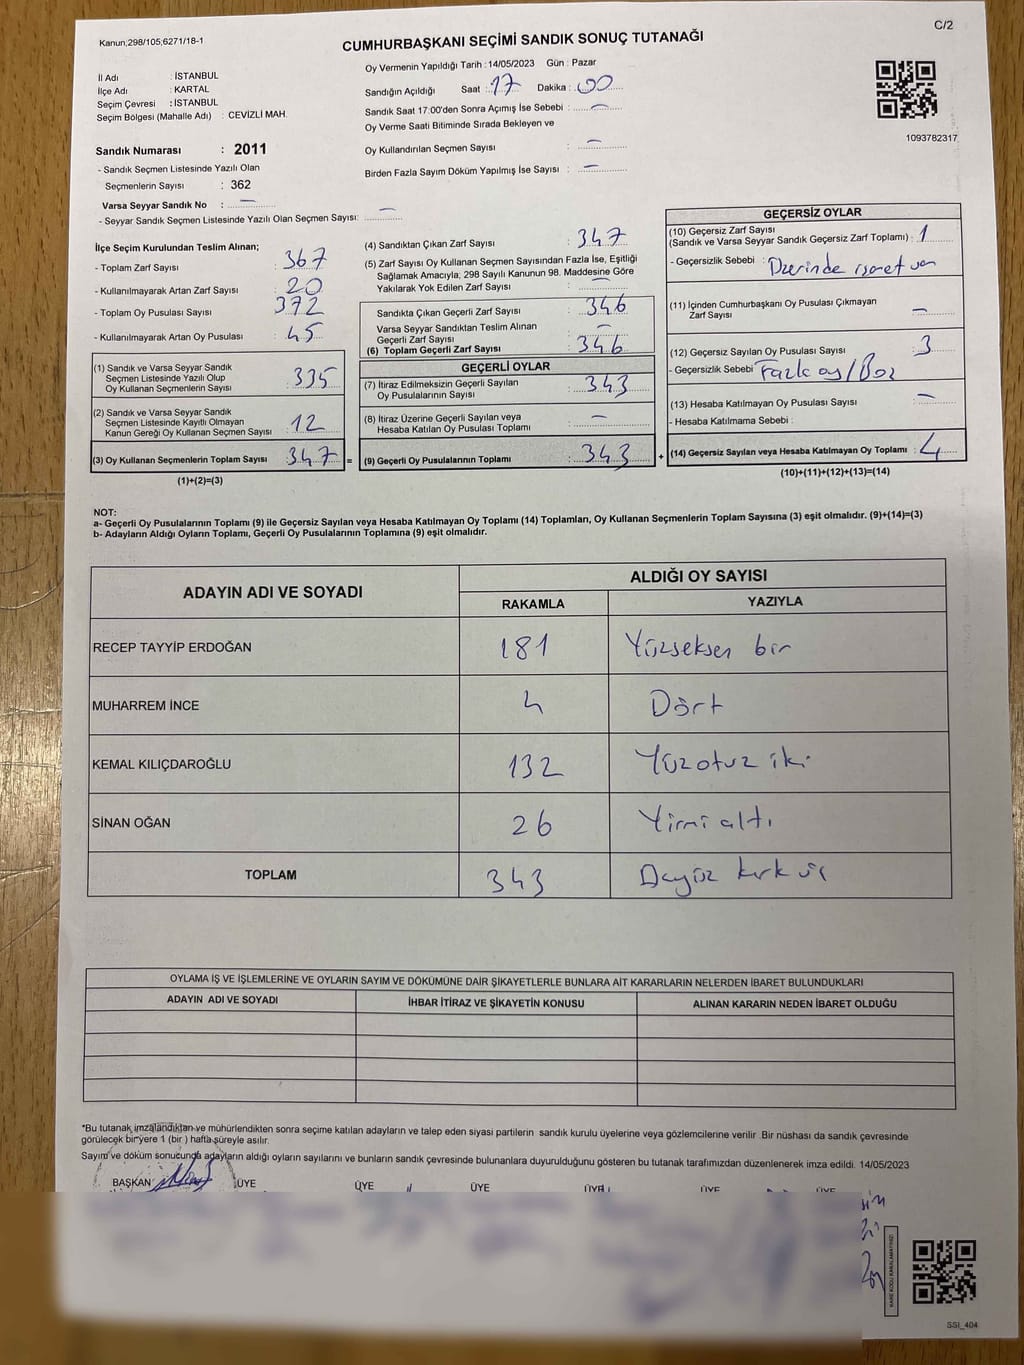 C/2
Kanun;298/105;6271/18-1
CUMHURBAŞKANI SEÇİMİ SANDIK SONUÇ TUTANAĞI
İl Adı : İSTANBUL
İlçe Adı : KARTAL
Seçim Çevresi : İSTANBUL
Seçim Bölgesi (Mahalle Adı) : CEVİZLİ MAH.
Sandık Numarası : 2011
- Sandık Seçmen Listesinde Yazılı Olan
Seçmenlerin Sayısı : 362
Varsa Seyyar Sandık No : —
- Seyyar Sandık Seçmen Listesinde Yazılı Olan Seçmen Sayısı: —
Oy Vermenin Yapıldığı Tarih : 14/05/2023 Gün : Pazar
Sandığın Açıldığı Saat : 17 Dakika : 00
Sandık Saat 17:00'den Sonra Açımış İse Sebebi : —
Oy Verme Saati Bitiminde Sırada Bekleyen ve
Oy Kullandırılan Seçmen Sayısı : —
Birden Fazla Sayım Döküm Yapılmış İse Sayısı : —
1093782317
İlçe Seçim Kurulundan Teslim Alınan;
- Toplam Zarf Sayısı : 367
- Kullanılmayarak Artan Zarf Sayısı : 20
- Toplam Oy Pusulası Sayısı : 372
- Kullanılmayarak Artan Oy Pusulası : 45
(1) Sandık ve Varsa Seyyar Sandık
Seçmen Listesinde Yazılı Olup
Oy Kullanan Seçmenlerin Sayısı : 335
(2) Sandık ve Varsa Seyyar Sandık
Seçmen Listesinde Kayıtlı Olmayan
Kanun Gereği Oy Kullanan Seçmen Sayısı : 12
(3) Oy Kullanan Seçmenlerin Toplam Sayısı : 347 =
(1)+(2)=(3)
(4) Sandıktan Çıkan Zarf Sayısı : 347
(5) Zarf Sayısı Oy Kullanan Seçmen Sayısından Fazla İse, Eşitliği
Sağlamak Amacıyla; 298 Sayılı Kanunun 98. Maddesine Göre
Yakılarak Yok Edilen Zarf Sayısı : —
Sandıkta Çıkan Geçerli Zarf Sayısı : 346
Varsa Seyyar Sandıktan Teslim Alınan
Geçerli Zarf Sayısı : —
(6) Toplam Geçerli Zarf Sayısı : 346
GEÇERLİ OYLAR
(7) İtiraz Edilmeksizin Geçerli Sayılan
Oy Pusulalarının Sayısı : 343
(8) İtiraz Üzerine Geçerli Sayılan veya
Hesaba Katılan Oy Pusulası Toplamı : —
(9) Geçerli Oy Pusulalarının Toplamı : 343 +
GEÇERSİZ OYLAR
(10) Geçersiz Zarf Sayısı
(Sandık ve Varsa Seyyar Sandık Geçersiz Zarf Toplamı) : 1
- Geçersizlik Sebebi : Üzerinde işaret var
(11) İçinden Cumhurbaşkanı Oy Pusulası Çıkmayan
Zarf Sayısı : —
(12) Geçersiz Sayılan Oy Pusulası Sayısı : 3
- Geçersizlik Sebebi : Fazla oy / Boş
(13) Hesaba Katılmayan Oy Pusulası Sayısı : —
- Hesaba Katılmama Sebebi :
(14) Geçersiz Sayılan veya Hesaba Katılmayan Oy Toplamı : 4
(10)+(11)+(12)+(13)=(14)
NOT:
a- Geçerli Oy Pusulalarının Toplamı (9) ile Geçersiz Sayılan veya Hesaba Katılmayan Oy Toplamı (14) Toplamları, Oy Kullanan Seçmenlerin Toplam Sayısına (3) eşit olmalıdır. (9)+(14)=(3)
b- Adayların Aldığı Oyların Toplamı, Geçerli Oy Pusulalarının Toplamına (9) eşit olmalıdır.
ADAYIN ADI VE SOYADI ALDIĞI OY SAYISI
RAKAMLA YAZIYLA
RECEP TAYYİP ERDOĞAN 181 Yüzseksen bir
MUHARREM İNCE 4 Dört
KEMAL KILIÇDAROĞLU 132 Yüzotuz iki
SİNAN OĞAN 26 Yirmi altı
TOPLAM 343 kırk üç
OYLAMA İŞ VE İŞLEMLERİNE VE OYLARIN SAYIM VE DÖKÜMÜNE DAİR ŞİKAYETLERLE BUNLARA AİT KARARLARIN NELERDEN İBARET BULUNDUKLARI
ADAYIN ADI VE SOYADI İHBAR İTİRAZ VE ŞİKAYETİN KONUSU ALINAN KARARIN NEDEN İBARET OLDUĞU
*Bu tutanak imzalandıktan ve mühürlendikten sonra seçime katılan adayların ve talep eden siyasi partilerin sandık kurulu üyelerine veya gözlemcilerine verilir. Bir nüshası da sandık çevresinde
görülecek bir yere 1 (bir ) hafta süreyle asılır.
Sayım ve döküm sonucunda adayların aldığı oyların sayılarını ve bunların sandık çevresinde bulunanlara duyurulduğunu gösteren bu tutanak tarafımızdan düzenlenerek imza edildi. 14/05/2023
BAŞKAN ÜYE ÜYE ÜYE ÜYE ÜYE ÜYE
KARE KODU KARALAMAYINIZ!
SSI_404